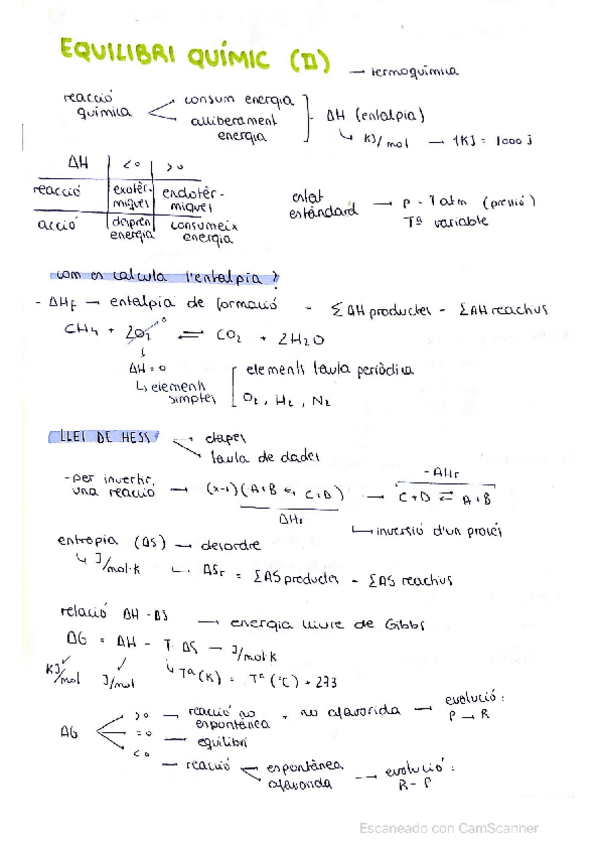 EQUILIBRI QUÍMIC (II) — termoquímica
reacció química
consum energia
alliberament energia
ΔH (entalpia)
↳ KJ/mol → 1KJ = 1000 j
ΔH | <0 | >0
reacció | exotèrmiques | endotèrmiques
acció | desprèn energia | consumeix energia
estat estàndard → P = 1 atm (pressió)
Tª variable
com es calcula l'entalpia?
- ΔHf → entalpia de formació = ΣΔH productes - ΣΔH reactius
CH4 + 2O2 ⇌ CO2 + 2H2O
ΔH = 0
↳ elements simples
elements taula periòdica
O2, H2, N2
LLEI DE HESS
etapes
taula de dades
- per invertir una reacció → (x-1)(A+B ⇌ C+D) → C+D ⇌ A+B
ΔHr
-ΔHr
↳ inversió d'un procés
entropia (ΔS) → desordre
↳ J/mol·k
↳ ΔSr = ΣΔS productes - ΣΔS reactius
relació ΔH - ΔS → energia lliure de Gibbs
ΔG = ΔH - T·ΔS → J/mol·k
KJ/mol
J/mol
↳ Tª(K) = Tª(ºC) + 273
ΔG
>0 → reacció no espontània, no afavorida → evolució: P → R
=0 → equilibri
<0 → reacció
espontània
afavorida → evolució: R - P
Escaneado con CamScanner